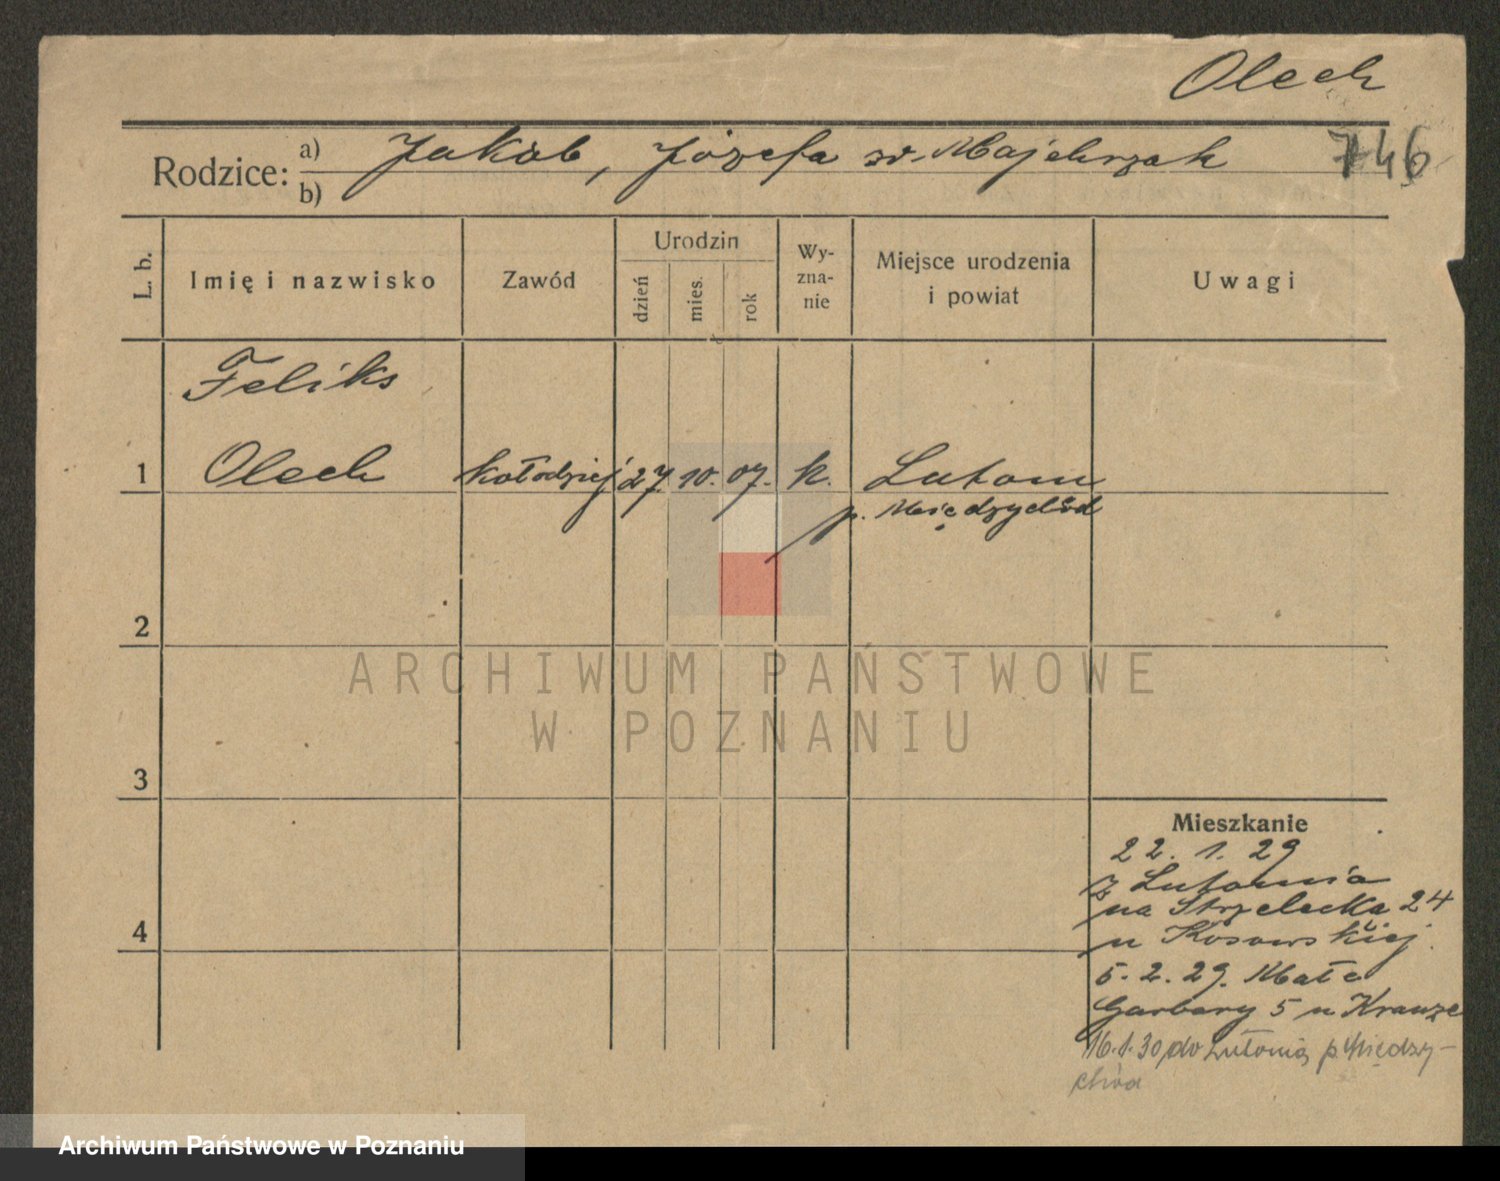 Olech
Rodzice: a) Jakób, Józefa zd. Majchrzak 746
b)
L. b.
Imię i nazwisko
Zawód
Urodzin
dzień
mies.
rok
Wy-
zna-
nie
Miejsce urodzenia
i powiat
Uwagi
Feliks
1 Olech kołodziej 27. 10. 07. k. Lutom
p. Międzychód
2
ARCHIWUM PAŃSTWOWE
W POZNANIU
3
Mieszkanie
22. 1. 29
z Lutomia
na Strzelecka 24
u Kosowskiej
4
5. 2. 29. Małe
Garbary 5 u Krauze
16.1.30 do Lutomia p. Między-
chód
Archiwum Państwowe w Poznaniu